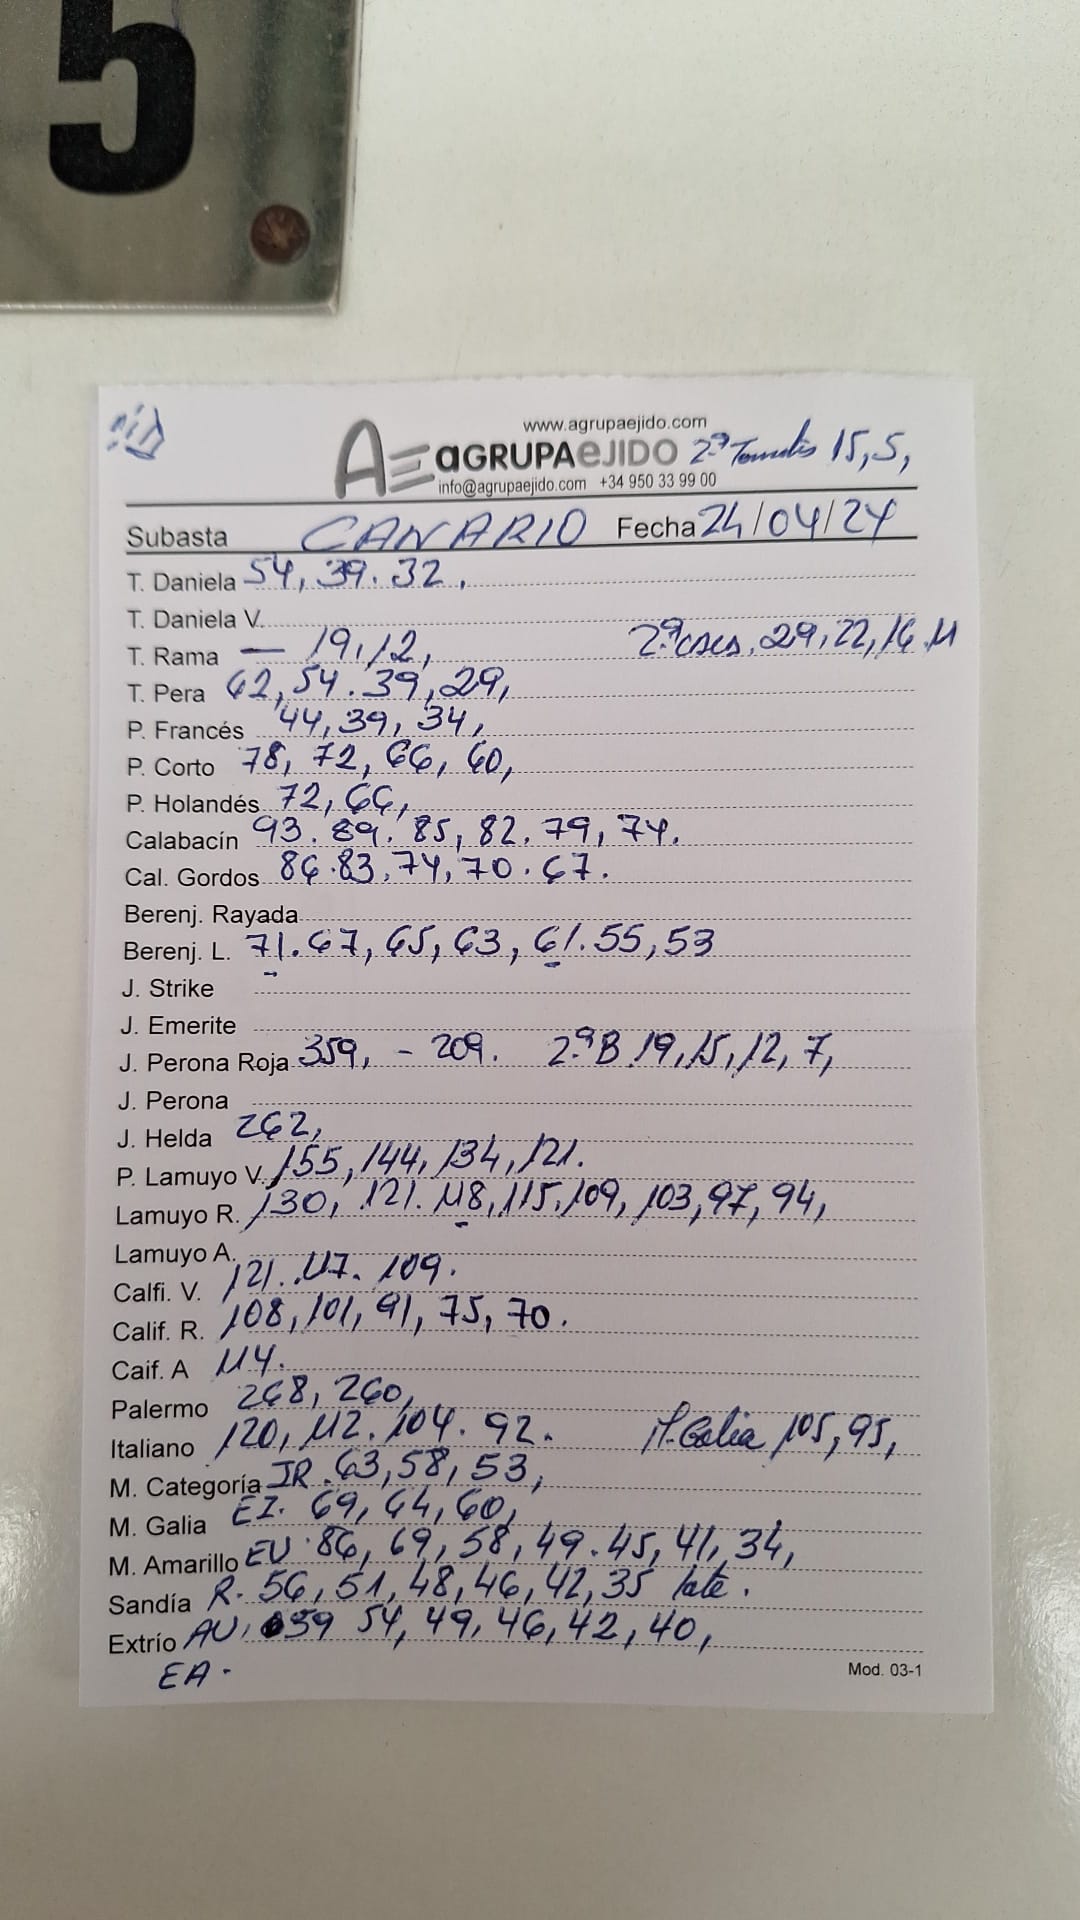 5
www.agrupaejido.com
AE aGRUPAeJIDO 2ª Tomates 15,5,
info@agrupaejido.com +34 950 33 99 00
Subasta CANARIO Fecha 24/04/24
T. Daniela 54, 39. 32,
T. Daniela V.
T. Rama — 19,12, 2ª CACA, 29,22,16.11
T. Pera 62,54.39,29,
P. Francés 44,39,34,
P. Corto 78, 72, 66, 60,
P. Holandés 72,66,
Calabacín 93.89.85,82.79,74.
Cal. Gordos 86.83,74,70.67.
Berenj. Rayada
Berenj. L. 71.67,65,63,61.55,53
J. Strike
J. Emerite
J. Perona Roja 359, - 209. 2ªB 19,15,12,7,
J. Perona
J. Helda 262,
P. Lamuyo V. 155,144,134,121.
Lamuyo R. 130, 121.118,115,109,103,97,94,
Lamuyo A.
Calfi. V. 121.117.109.
Calif. R. 108,101,91,75,70.
Caif. A 114.
Palermo 268,260,
Italiano 120,112.104.92. M.Galia 105,95,
M. Categoría IR.63,58,53,
M. Galia EI. 69,64,60,
M. Amarillo EU.86,69,58,49.45,41,34,
Sandía R. 56,51,48,46,42,35 kate.
Extrío AU, 59 54,49,46,42,40,
EA.
Mod. 03-1